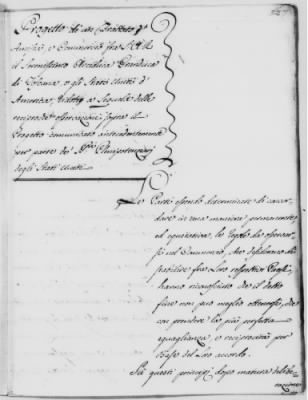 Progetto di un Trattato d'
Amicizia, e Commercio fra S.A.R.
il Serenissimo Arciduca Granduca
di Toscana, e gli Stati Uniti d'
America, ridotto a seguela delle
osservazioni sopra il
Progetto comunicato antecedentemente
per parte dei Plenipotenziarj
degli Stati Uniti.
Le Parti essendo determinate di concor-
dare in una maniera permanente,
ed equitativa, le regole da osservar-
si nel Commercio, che desiderano
stabilire fra i loro respettivi Paesi,
hanno riconosciuto che il detto
fine non può meglio ottenersi, che
con prendere la più perfetta
uguaglianza, e reciprocità per
base del loro accordo.
Su questi principj dopo matura delibe-
razione